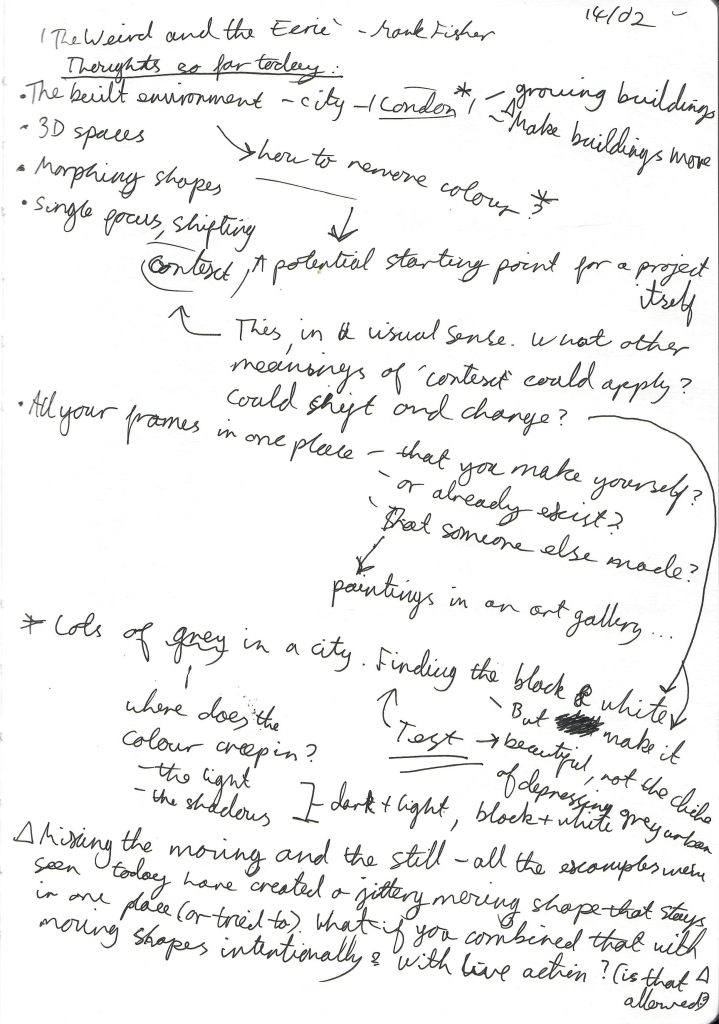 14/02
'The Weird and the Eerie' - Mark Fisher
Thoughts so far today:
• The built environment - city - (London*) - growing buildings
- △ Make buildings move
- 3D spaces
→ how to remove colour? *
• Morphing shapes
• Single focus, shifting
context, A potential starting point for a project
itself
This, in a visual sense. What other
meanings of 'context' could apply?
Could shift and change?
• All your frames in one place - that you make yourself?
- or already exist?
- That someone else made?
paintings in an art gallery...
* Lots of grey in a city. Finding the black & white
But make it
where does the
colour creep in?
Test → beautiful, not the cliche
of depressing grey urban
- the light
- the shadows
dark + light, black + white
△ Mixing the moving and the still - all the examples we've
seen today have created a jittery moving shape that stays
in one place (or tried to). What if you combined that with
moving shapes intentionally? With live action? (is that △
allowed?)